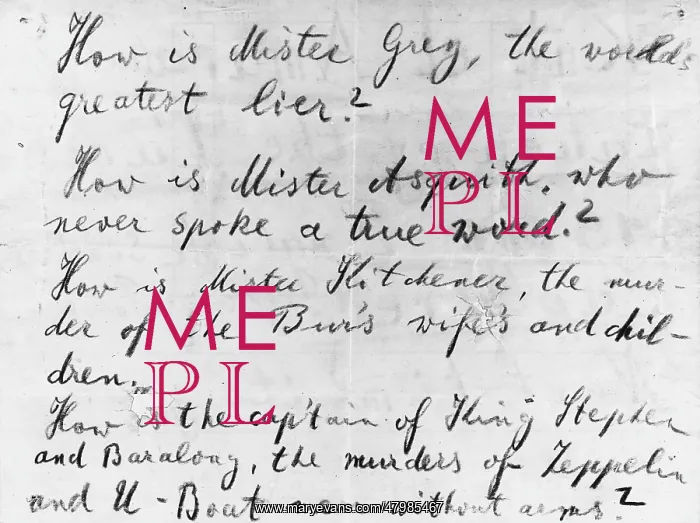 How is Mister Grey, the worlds
greatest lier?
How is Mister Asquith, who
never spoke a true word?
How is Mister Kitchener, the mur-
der of the Bur's wife's and chil-
dren.
How is the cap'tain of King Stephen
and Baralong, the murders of Zeppelin
and U-Boat without arms?
ME
PL
ME
PL
www.maryevans.com/47985467